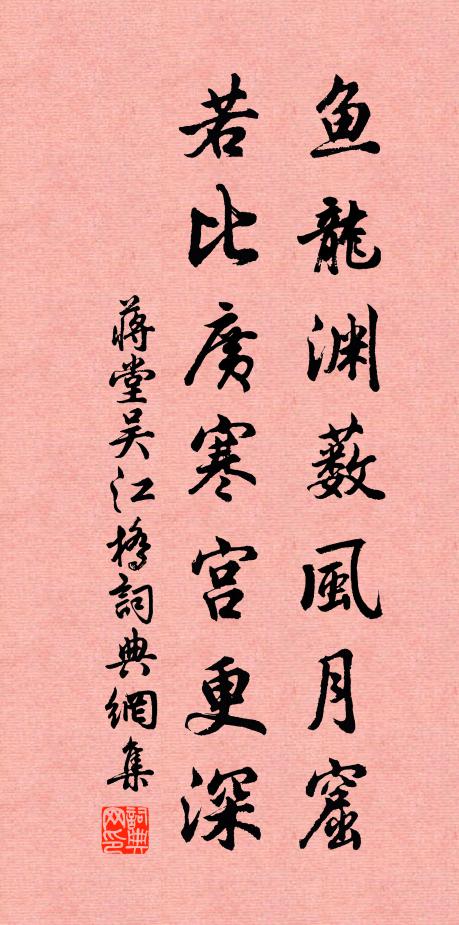 鱼龍渊薮風月窟
若比廣寒宫更深
蔣堂吴江橋詞典網集
詞典网印